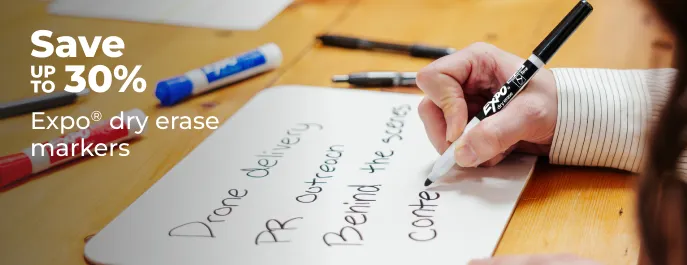 Save
UP TO 30%
Expo® dry erase
markers
EXPO
EXPO
dry erase
Drone delivery
PR outreach
Behind the scenes
conte